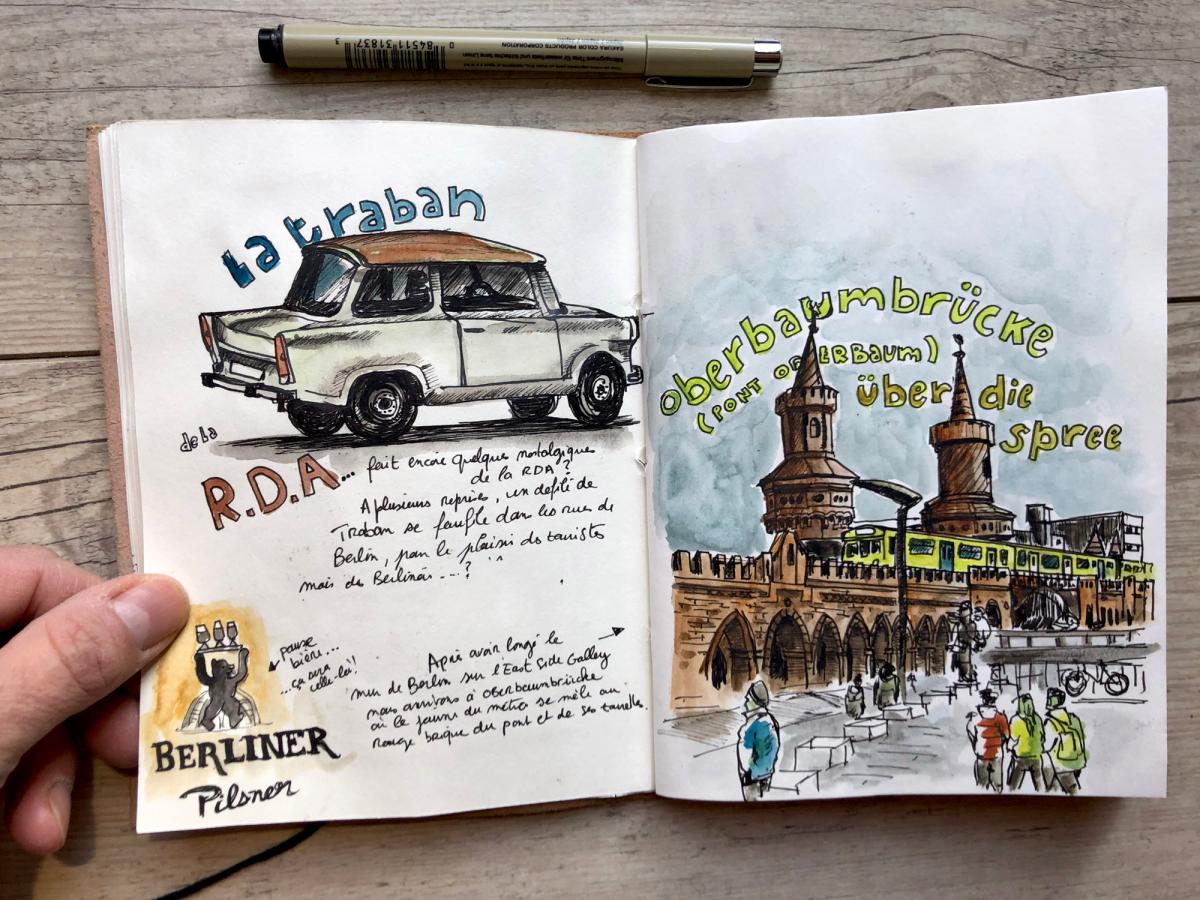 SAKURA COLOR PRODUCTS CORPORATION
0 84511 31837 3
La traban
de la
R.D.A... fait encore quelques nostalgiques
de la RDA ?
A plusieurs reprises, un défilé de
Traban se faufile dans les rues de
Berlin, pour le plaisir des touristes
mais des Berlinois ....?
pause
bière...
...ça sera
celle-là!
BERLINER
Pilsner
Après avoir longé le
mur de Berlin sur l'East Side Gallery
nous arrivons à oberbaumbrücke
où le jaune du métro se mêle au
rouge brique du pont et de ses tourelles.
oberbaumbrücke
(PONT OBERBAUM)
über die
spree